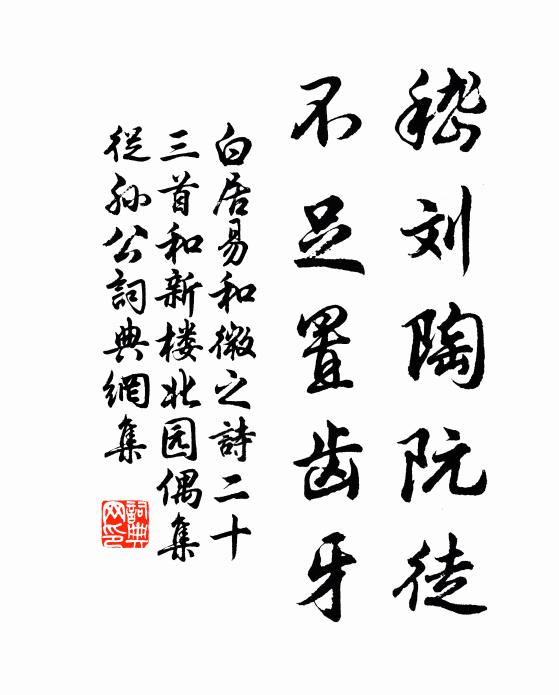 嵇刘陶阮徒
不足置齿牙
白居易和微之詩二十
三首和新楼北园偶集
從孙公詞典網集
詞典
网印